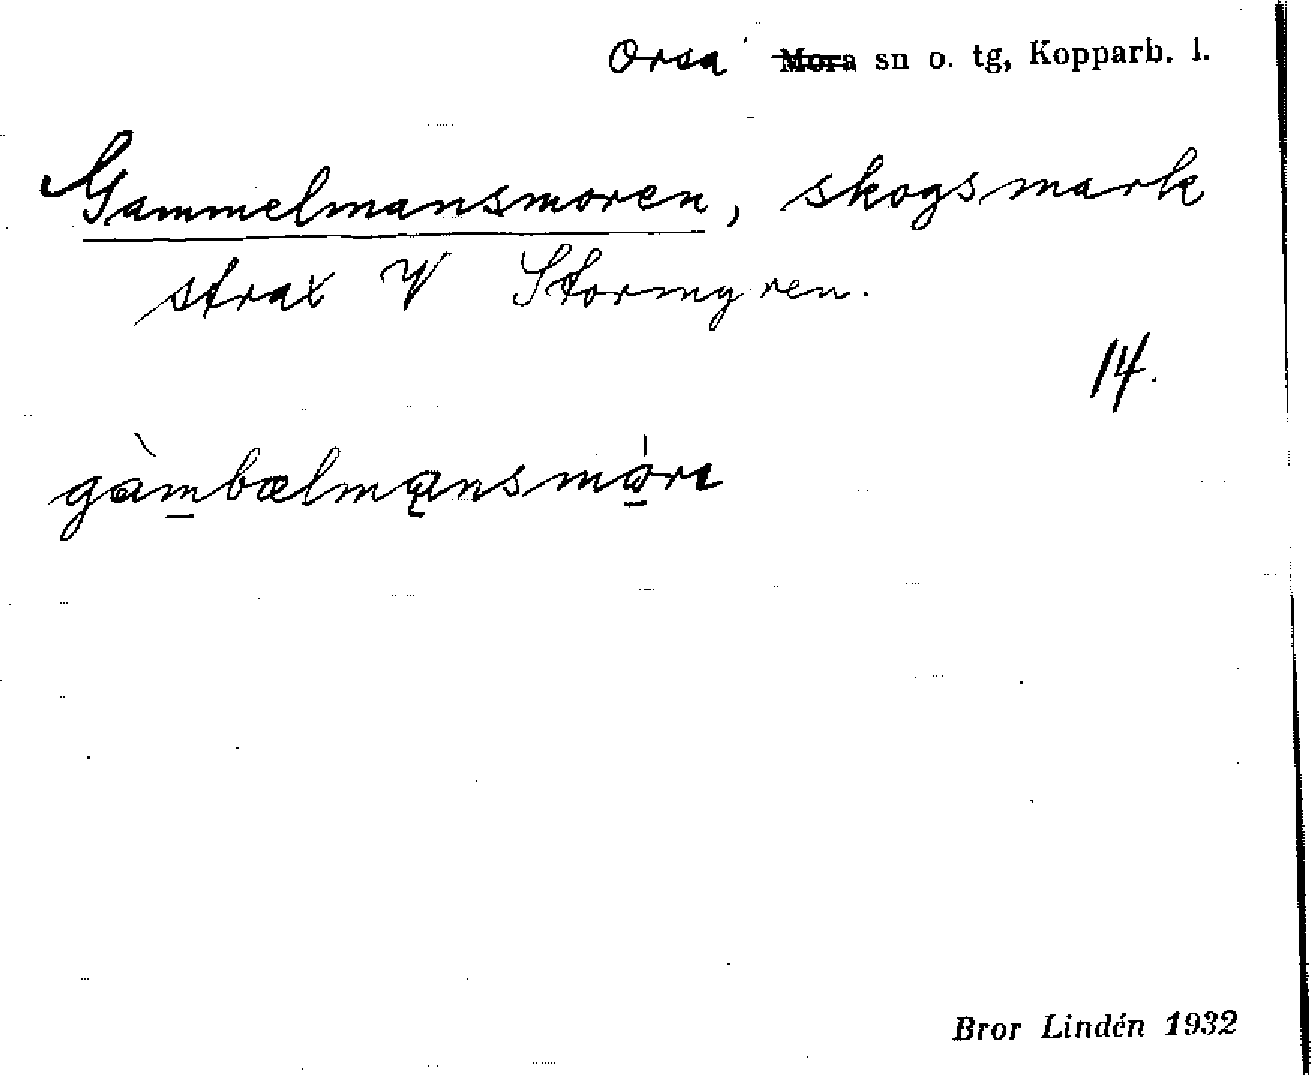 Orsa Mora sn o. tg, Kopparb. l.
Gammelmansmoren, skogsmark
strax V Stormyren.
14.
gàm̲bælmąnsmo̲̍rɩ
Bror Lindén 1932